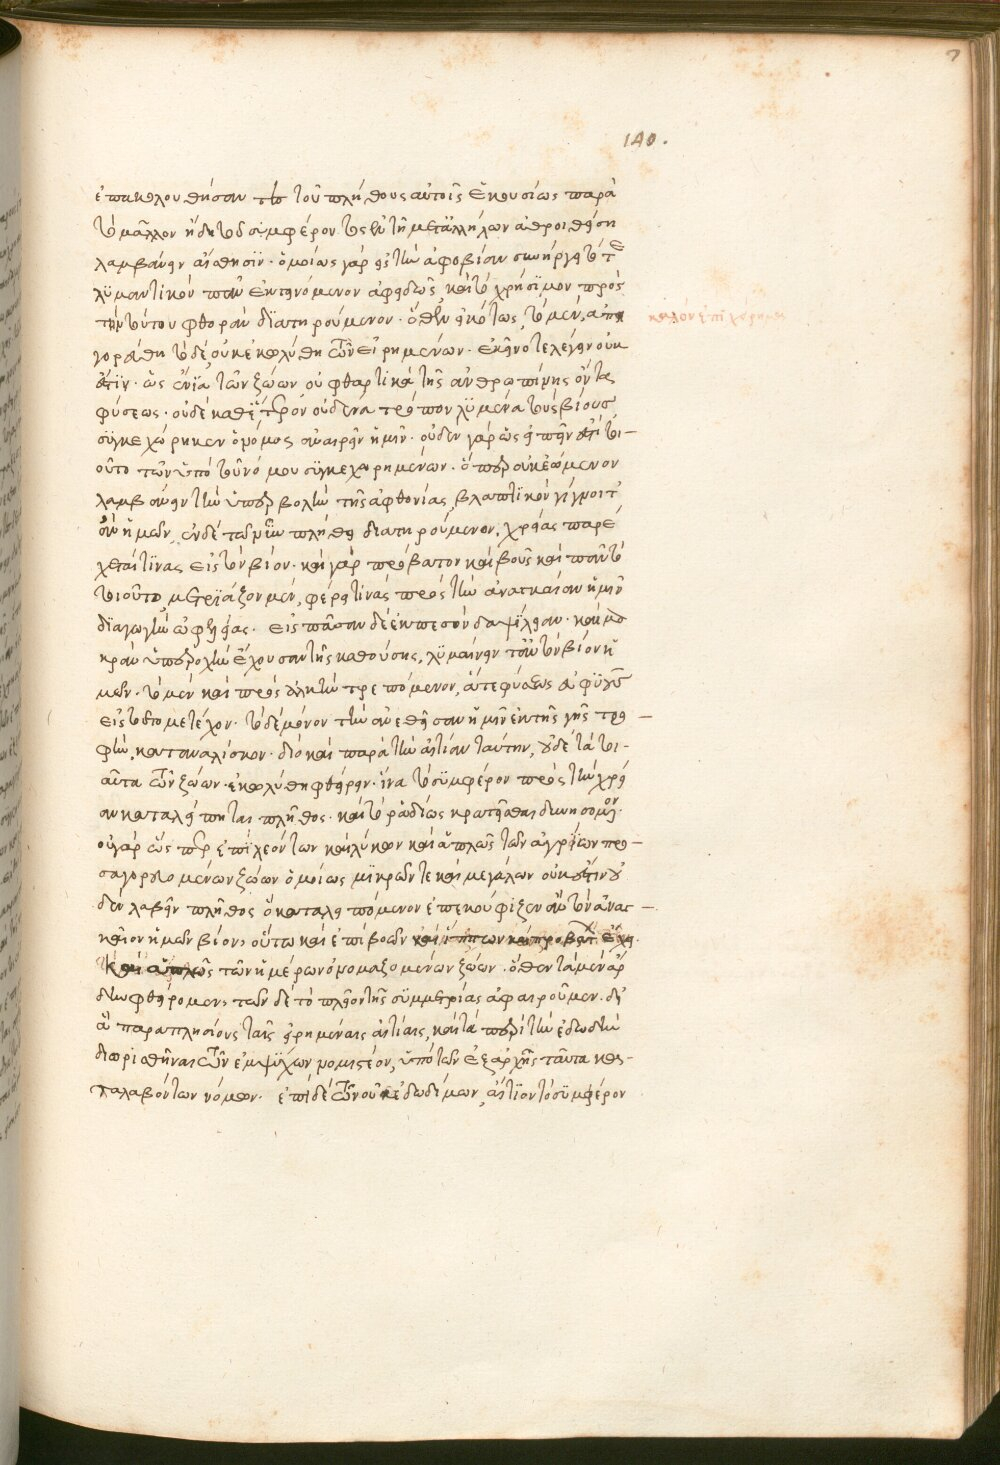 ἐπακολουθήσαν τὸ τοῦ πλήθους αὐτοῖς ἑκουσίως παρὰ
τὸ μᾶλλον ἤδη τοῦ συμφέροντος ἐν τῇ μετ' ἀλλήλων ἀθροισθήσῃ
λαμβάνειν αἴσθησιν. ὁμοίως γὰρ εἰς τὴν ἀφοβίαν συνήργει τό τε
λυμαντικὸν πᾶν ἐκτεινόμενον ἀφειδῶς, καὶ τὸ χρήσιμον πρὸς
τὴν τούτου φθορὰν διατηρούμενον. ὅθεν εἰκότως, τὸ μὲν, ἀπη
γορεύθη τὸ δὲ, οὐκ ἐκωλύθη τῶν εἰρημένων. ἐκεῖνο τε λέγειν οὐκ
ἔστιν. ὡς ἔνια τῶν ζώων, οὐ φθαρτικὰ τῆς ἀνθρωπίνης ὄντας
φύσεως. οὐδὲ καθ' ἕτερον οὐδένα τρόπον λυμένα τοὺς βίους
συγκεχώρηκεν ὁ νόμος ἀναιρεῖν ἡμῖν. οὐδὲν γὰρ ὡς εἰπεῖν ἐστι τοι-
οῦτο τῶν ὑπὸ τοῦ νόμου συγκεχωρημένων. ὅπερ οὐκ ἐώμενον
λαμβάνειν τὴν ὑπερβολὴν τῆς ἀφθονίας, βλαπτικὸν γίγνοιτ'
ἂν ἡμῶν, ἐν δὲ τῷ νῦν πλήθει διατηρούμενον, χρείας παρέ
χεταί τινας εἰς τὸν βίον. καὶ γὰρ πρόβατον καὶ βοῦς καὶ πᾶν τὸ
τοιοῦτο, μετριάζον μὲν, φέρει τινὰς πρὸς τὴν ἀναγκαίαν ἡμῖν
διαγωγὴν ὠφελείας. εἰς πᾶσαν δὲ ἐκπεσὸν δαψίλειαν. καὶ μα
κρὰν ὑπεροχὴν ἔχουσαν τῆς καθούσης, λυμαίνειν τὸν βίον ἡ
μῶν. τὸ μὲν καὶ πρὸς ἀλκὴν τρεπόμενον, ἅτε φύσεως ἀφ' ὑγ
εἰς τοῦτο μετέχον. τὸ δὲ μόνον τὴν ἀνεθεῖσαν ἡμῖν ἐκ τῆς γῆς τρο-
φὴν, καταναλίσκον. διὸ καὶ παρὰ τὴν αἰτίαν ταύτην, οὐδὲ τὰ τοι-
αῦτα τῶν ζώων. ἐκωλύθη φθείρειν. ἵνα τὸ σύμφερον πρὸς τὴν χρεί
αν καταλείπηται πλῆθος. καὶ τὸ ῥαδίως κρατεῖσθαι δυνησόμενον.
οὐ γὰρ ὥσπερ ἐπὶ λεόντων καὶ λύκων καὶ ἁπλῶς τῶν ἀγρίων προ-
σαγορευομένων ζώων ὁμοίως μικρῶν τε καὶ μεγάλων οὐκ ἔστιν οὐ
δὲν λαβεῖν πλῆθος ὃ καταλειπόμενον ἐπεκούφιζεν ἂν τὸν ἀναγ-
καῖον ἡμῶν βίον, οὕτω καὶ ἐπὶ βοῶν καὶ ἵππων καὶ προβάτων ἔχει.
καὶ ἁπλῶς τῶν ἡμέρων ὀνομαζομένων ζώων. ὅθεν τὰ μὲν ἄρ
δην φθείρομεν, τῶν δὲ τὸ πλεῖον τῆς συμμετρίας ἀφαιροῦμεν. δι'
ἃ παραπλησίους ταῖς εἰρημέναις αἰτίαις, καὶ τὰ περὶ τὴν ἐδωδὴν
διορισθῆναι τῶν ἐμψύχων νομιστέον, ὑπὸ τῶν ἐξ ἀρχῆς ταῦτα κα-
ταλαβόντων νόμων. ἐπὶ δὲ τῶν οὐκ ἐδωδίμων, αἴτιον τὸ σύμφερον
140.
καλὸν ἐπιχείρημα
7